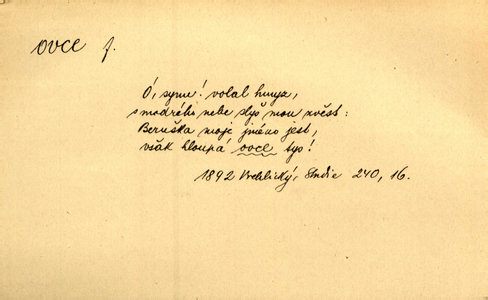 ovce f.
Ó, synu! volal hmyz,
s modrého nebe slyš mou zvěst:
Beruška moje jméno jest,
však hloupá ovce tys!
1892 Vrchlický, Studie 240, 16.